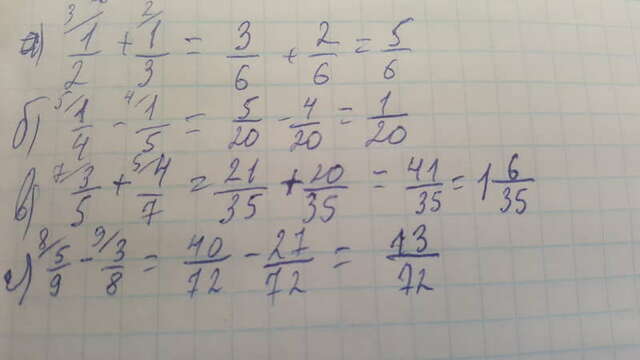 а) 3/ 1/2 + 2/ 1/3 = 3/6 + 2/6 = 5/6
б) 5/ 1/4 - 4/ 1/5 = 5/20 - 4/20 = 1/20
в) 7/ 3/5 + 5/ 4/7 = 21/35 + 20/35 = 41/35 = 1 6/35
г) 8/ 5/9 - 9/ 3/8 = 40/72 - 27/72 = 13/72